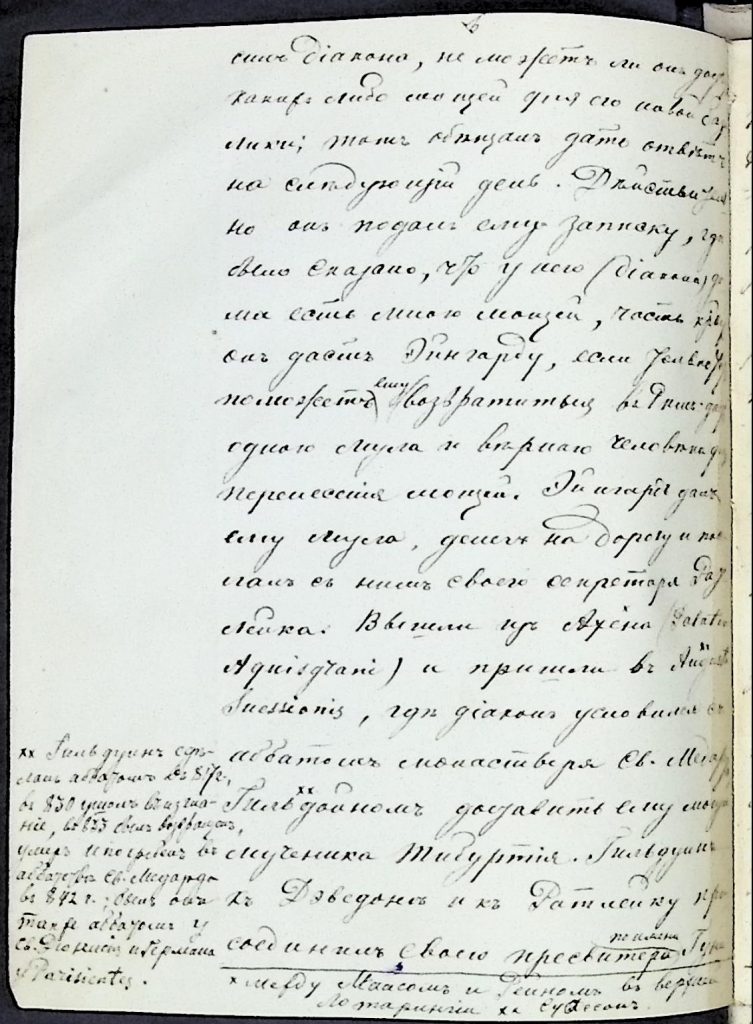 симъ діакона, не можетъ ли онъ
какихъ либо мощей для его новой
тотъ обѣщалъ дать отвѣтъ
на слѣдующій день. Дѣйствитель
но онъ подалъ ему записку, гдѣ
было сказано, что у него (діакона) до
ма есть много мощей, часть
онъ дастъ Эйнгарду, если
поможетъ ему возвратиться въ Римъ
одного мула и вѣрнаго человѣка
перенесенія мощей. Эйнгардъ далъ
ему мула, денегъ на дорогу и по
слалъ съ нимъ своего секретаря Рат
лейка. Вышли изъ Ахена (Palatio
Aquisgrani) и пришли въ Augusta xx
Suessionis, гдѣ діаконъ условился съ
аббатомъ монастыря Св. Медарда
xx Гильдойномъ доставить ему мощи
мученика Тибуртія. Гильдуинъ
къ и къ Ратлейку при
соединилъ своего пресвитера по имени
xx Гильдуинъ сдѣ-
ланъ аббатомъ въ
въ 830
въ 833 былъ возвращенъ,
умеръ и погребенъ въ
аббатствѣ Св. Медарда
въ 842 г.; былъ онъ
также аббатомъ у
Св. Діонисія и Германа
Parisientes.
x между Маасомъ и Рейномъ въ верхней
Лотарингіи xx Суассонъ.